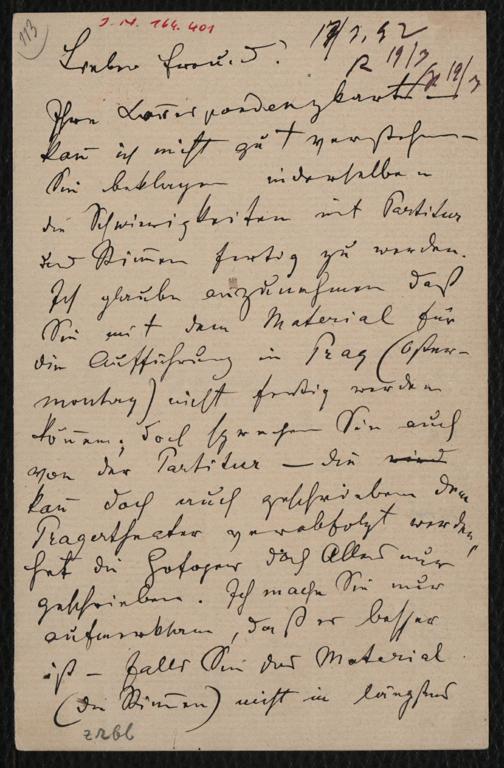 113
J. N. 164.401
Lieber Freund! 17/3. 92
R 19/3
19/3
Ihre Correspondenzkarte
kan̄ ich nicht gut verstehen —
Sie beklagen in derselben
die Schwierigkeiten mit Partitur
und Stim̄en fertig zu werden.
Ich glaube anzunehmen daß
Sie mit dem Material für
die Aufführung in Prag (Oster-
montag) nicht fertig werden
können; doch sprechen Sie auch
von der Partitur — die wird
kan̄ doch auch geschrieben dem
Pragertheater verabfolgt werden,
hat die Hofoper doch Alles nur
geschrieben. Ich mache Sie nur
aufmerksam, daß es besser
ist — falls Sie das Material
(die Stim̄en) nicht in längstens
z266